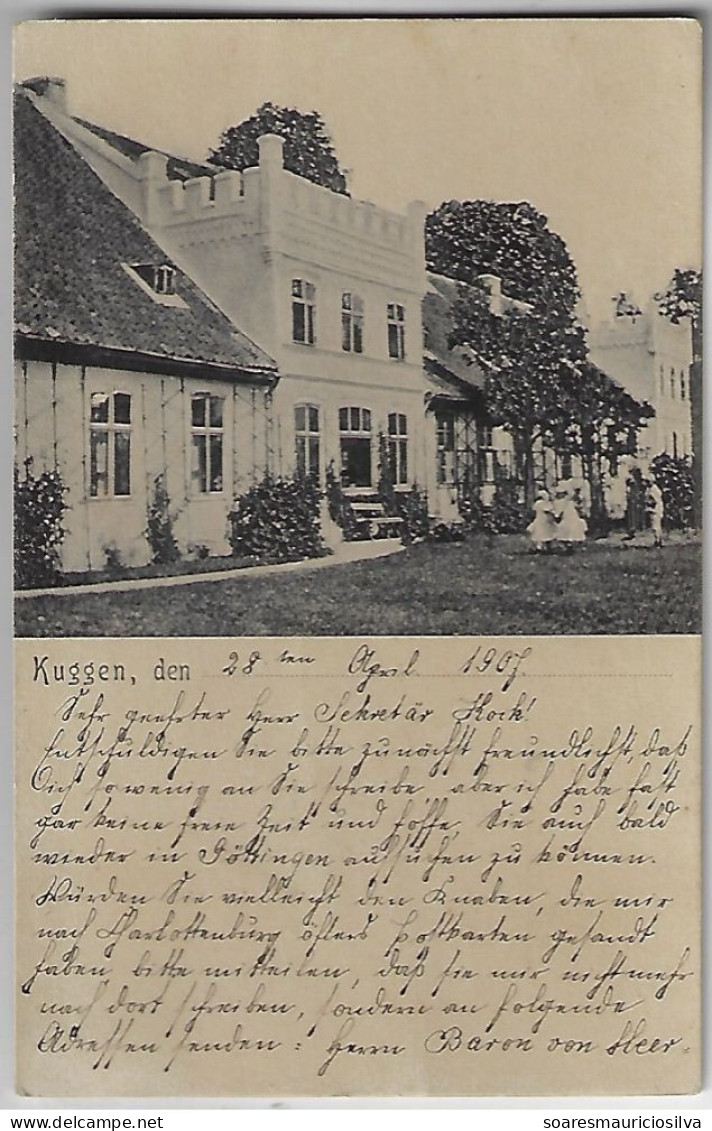 Kuggen, den 28ten April 1907.
Sehr geehrter Herr Sekretär Koch!
Entschuldigen Sie bitte zunächst freundlichst, daß
ich so wenig an Sie schreibe, aber ich habe fast
gar keine freie Zeit und hoffe, Sie auch bald
wieder in Göttingen aufsuchen zu können.
Würden Sie vielleicht den Knaben, die mir
nach Charlottenburg öfters Postkarten gesandt
haben bitte mitteilen, daß sie mir nicht mehr
nach dort schreiben, sondern an folgende
Adressen senden: Herrn Baron von Heer-
soaresmauriciosilva